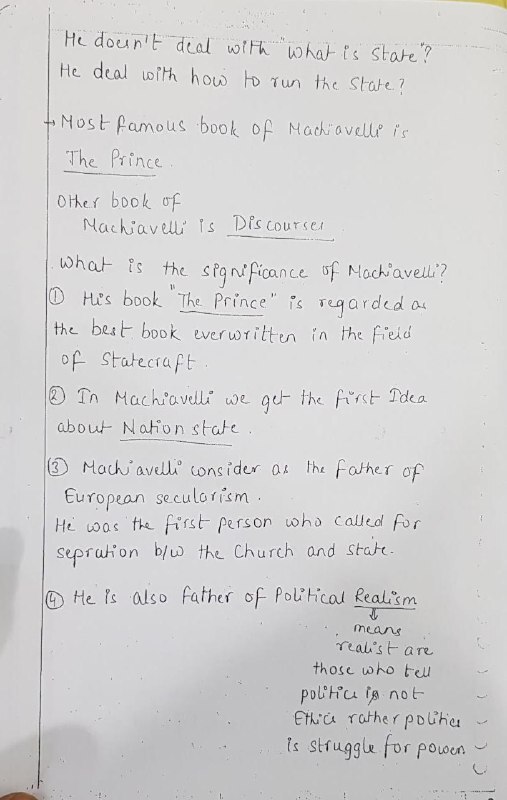 He doesn't deal with "what is State"?
He deal with how to run the State?
→ Most famous book of Machiavelli is
The Prince.
Other book of
Machiavelli is Discourses
What is the significance of Machiavelli?
① His book "The Prince" is regarded as
the best book everwritten in the field
of Statecraft.
② In Machiavelli we get the first Idea
about Nation state.
③ Machiavelli consider as the father of
European secularism.
He was the first person who called for
sepration b/w the Church and state.
④ He is also father of Political Realism
⇓
means
realist are
those who tell
politics is not
Ethics rather politics
is struggle for power